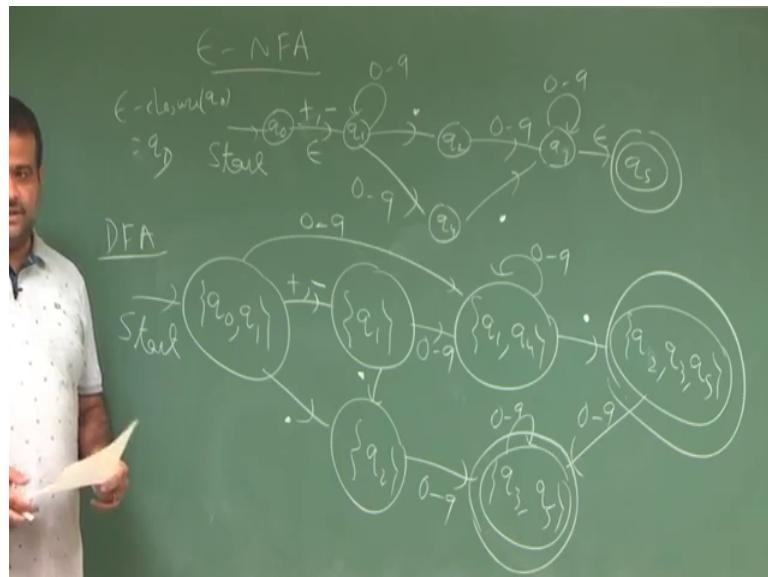 ϵ-NFA
ϵ-closure(q₀)
= q_D
Start
q₀
+,-
ϵ
q₁
0-9
.
q₂
0-9
0-9
ϵ
q₅
0-9
q₄
.
DFA
Start
{q₀,q₁}
0-9
+,-
{q₁}
0-9
{q₁,q₄}
0-9
.
{q₂,q₃,q₅}
.
.
{q₂}
0-9
{q₃ q₅}
0-9
0-9